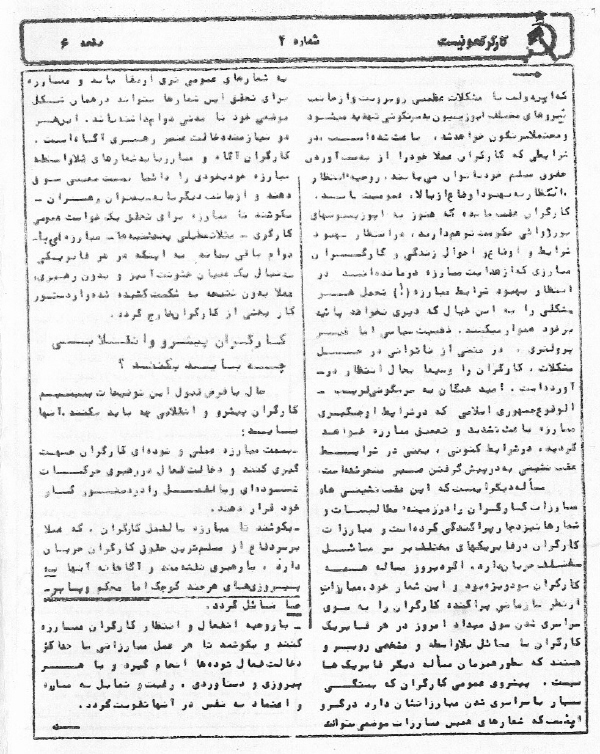 کارگر کمونیست
شماره ۴
صفحه ۶
که این دولت با مشکلات عظیمی روبروست و از جانب
نیروهای مختلف اپوزیسیون به سرنگونی تهدید میشود
و محتملا سرنگون خواهد شد، باعث شده است، در
شرایطی که کارگران عملا خود را از بدست آوردن
حقوق مسلم خود ناتوان می‌یابند، روحیه انتظار
، انتظار به بهبود اوضاع از بالا، عمومیت یابد.
کارگران عقب مانده که هنوز به اپوزیسیونهای
بورژوائی حکومت توهم دارند، در انتظار بهبود
شرایط و اوضاع و احوال زندگی و کارگران
مبارزی که از هدایت مبارزه درمانده‌اند در
انتظار بهبود شرایط مبارزه (!) تحمل هر
مشکلی را به این خیال که دیری نخواهد پائید
بر خود هموار میکنند. ذهنیت سیاسی اما غیر
پرولتری، در متنی از ناتوانی در حل
مشکلات، کارگران را وسیعا بحال انتظار در
آورده است. امید همگان به سرنگونی قریب
الوقوع جمهوری اسلامی که در شرایط اوجگیری
مبارزه باعث تشدید و تعمیق مبارزه خواهد
گردید، در شرایط کنونی، یعنی در شرایط
عقب نشینی به در پیش گرفتن صبر منجر شده است.
مسأله دیگر اینست که این عقب نشینی ها
مبارزات کارگران را در زمینه مطالبات و
شعارها نیز دچار پراکندگی کرده است و مبارزات
کارگران در فابریکهای مختلف بر سر مسائل
مختلف جریان دارد. اگر دیروز مساله همه
کارگران سود ویژه بود و این شعار خود، مبارزات
از نظر سازمانی پراکنده کارگران را به سوی
سراسری شدن سوق میداد امروز در هر فابریک
کارگران با مسائل بلاواسطه و مشخصی روبرو
هستند که بطور همزمان مسأله دیگر فابریک ها
نیست. پیشروی عمومی کارگران که بستگی
بسیار با سراسری شدن مبارزاتشان دارد در گرو
اینست که شعارهای همین مبارزات موضعی بتوانند
به شعارهای عمومی تری ارتقا یابد و مبارزه
برای تحقق این شعارها بتواند در همان شکل
موضعی خود تا مدتی دوام داشته باشد. این هر
دو نیازمند دخالت عنصر رهبری آگاه است.
کارگران آگاه و مبارز باید شعارهای بلاواسطه
مبارزه خودبخودی را دائما بسمت معینی سوق
دهند و از جانب دیگر باید بعنوان رهبران
بکوشند تا مبارزه برای تحقق یک خواست عمومی
کارگری - مثلا تعطیلی پنجشنبه‌ها - مبارزه‌ای با
دوام باقی بماند نه اینکه در هر فابریکی
بدنبال یک عصیان خشونت آمیز و بدون رهبری،
عملا بدون نتیجه به شکست کشیده شده و از دستور
کار بخشی از کارگران خارج گردد.
کارگران پیشرو و انقلابی
چه باید بکنند ؟
حال با فرض قبول این توضیحات ببینیم
کارگران پیشرو و انقلابی چه باید بکنند. آنها
باید:
- بسمت مبارزه عملی و توده‌ای کارگران جهت
گیری کنند و دخالت فعال در رهبری حرکات
توده‌ای و بالفعل را در دستور کار
خود قرار دهند.
- بکوشند تا مبارزه بالفعل کارگران، که عملا
بر سر دفاع از مسلم‌ترین حقوق کارگران جریان
دارد، با رهبری نقشه‌مند و آگاهانه آنها به
پیروزی‌های هر چند کوچک اما محکم و پابر
جا نائل گردد.
- با روحیه انفعال و انتظار کارگران مبارزه
کنند و بکوشند تا هر عمل مبارزاتی با حداکثر
دخالت فعال توده‌ها انجام گیرد و با هر
پیروزی و دستاوردی، رغبت و تمایل به مبارزه
و اعتماد به نفس در آنها تقویت گردد.